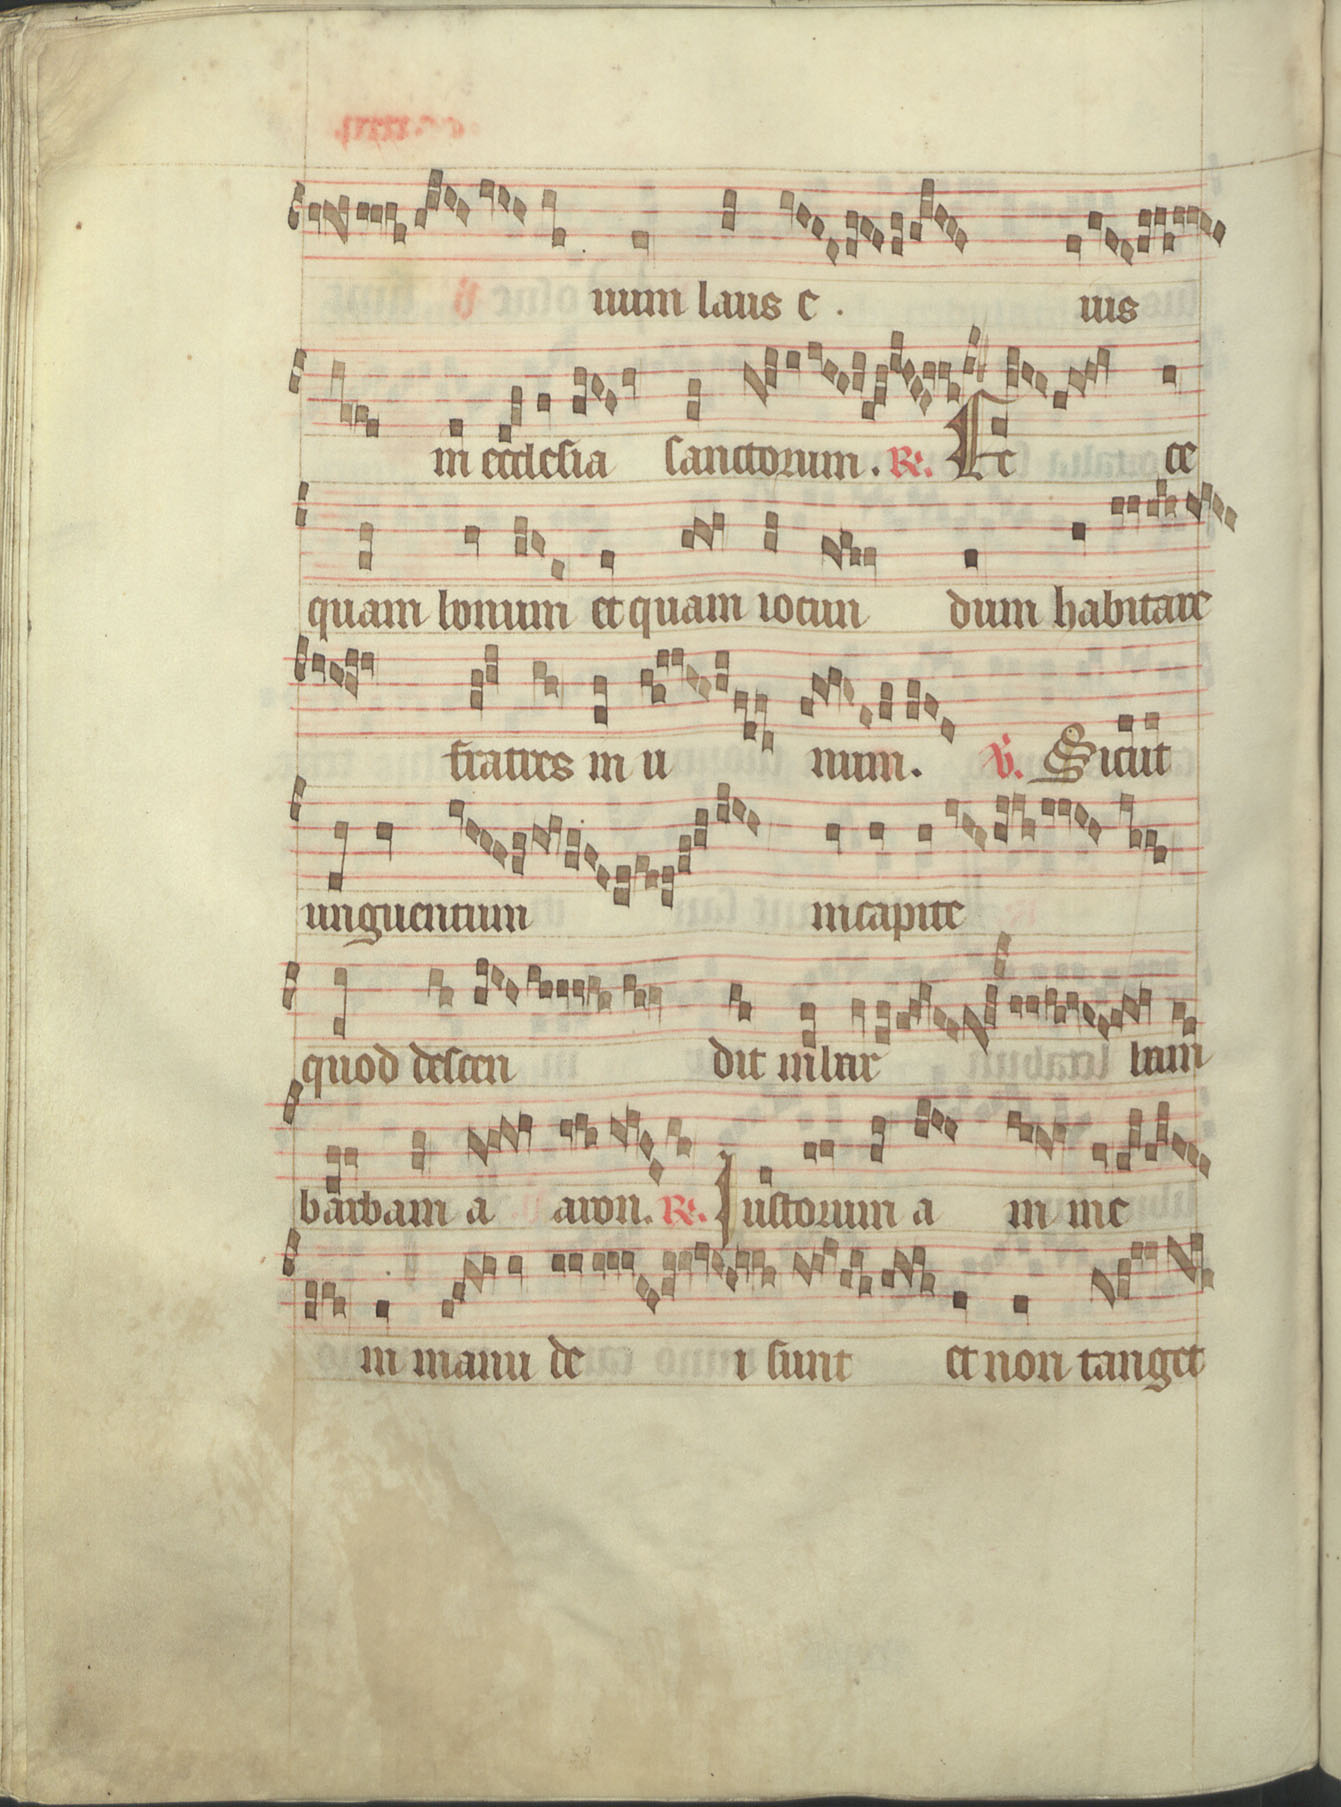 uum laus e . ius
in ecclesia sanctorum . R. Ec ce
quam bonum et quam iocun dum habitare
fratres in u num . V. Sicut
unguentum in capite
quod descen dit in bar bam
barbam a aron . R. Iustorum a ni me
in manu de i sunt et non tanget